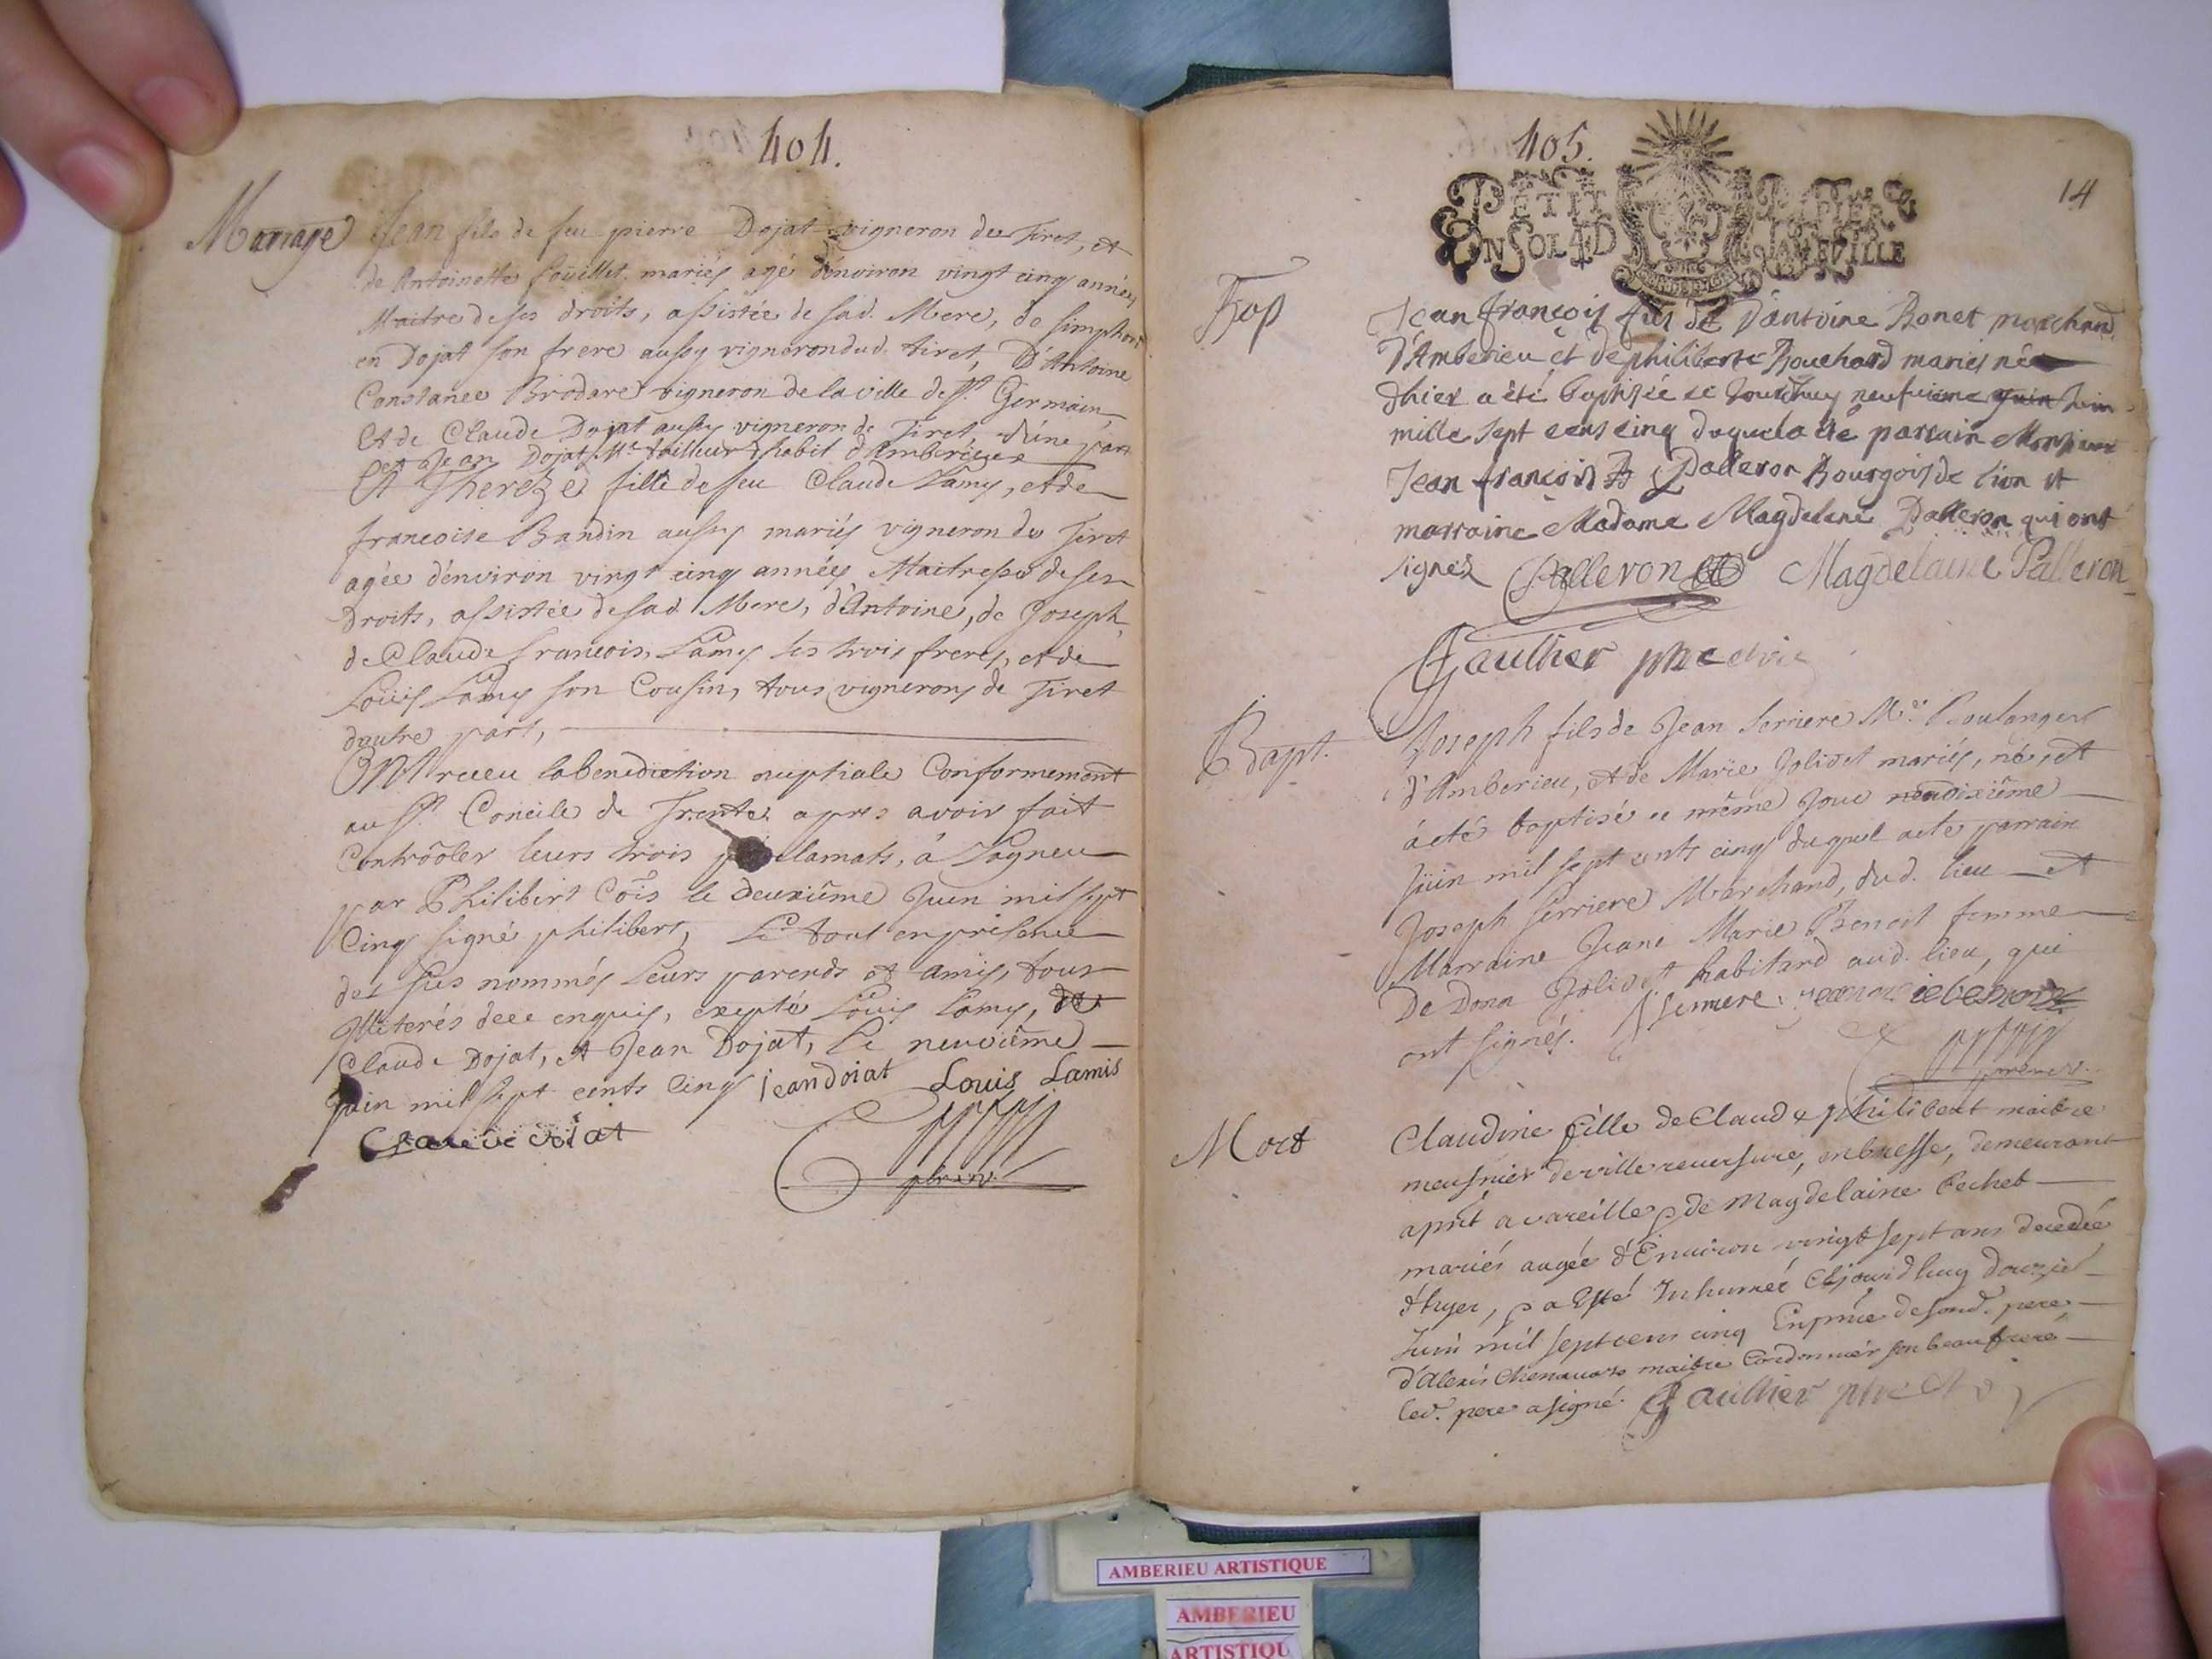 404.
Mariage Jean fils de feu pierre Dojat vigneron du Tiret, et
de Antoinette foüillet mariés agé d'environ vingt cinq années
Maitre de ses droits, assistée de sad. Mere, de Simphori
en Dojat son frere aussy vigneron dud. tiret, D'Antoine
Constance Brodard vigneron de la ville de St. Germain
et de Claude Dojat aussy vigneron de Tiret d'une part
et Jean Dojat Me. tailleur d'habit d'Amberieux
Et Thereze fille de feu Claude Lamy, et de
francoise Bandin aussy mariés vigneron du Tiret
agée d'environ vingt cinq années Maitresse de ses
droits, assistée de sad. Mere, d'Antoine, de Joseph,
de Claude francois Lamy ses trois freres, et de
Loüis Lamy son Cousin, tous vignerons de Tiret
d'autre part,
ONt receu la benediction nuptiale Conformement
au St. Concile de Trente, apres avoir fait
Controoler leurs trois proclamats, à Lagneu
par Philibert Cois le deuxiême Juin mil sept
Cinq signé philibert, Le tout en presence
des sus nommés Leurs parents et amis, tous
illiterés de ce enquis, excepté Louis Lamy, de
Claude Dojat, et Jean Dojat, Le neuviême
Juin mil sept cents Cinq jean doiat Louis Lamis
Claude doiat
405.
14
PETIT PAPIER
UN SOL 4 D LA FEVILLE
Bap
Jean francois fils de D'antoine Bonet marchand
D'Amberieu et de philiberte Bouchard mariés né
d'hier a été baptisée ce jourdhuy neufuieme juin Juin
mille sept cens cinq duquel a été parrain Monsieur
Jean francois Palleron Bourgois de lion et
marraine Madame Magdelene Palleron qui ont
signéz Palleron Magdelaine Palleron
Gaulthier ptre
Bapt. Joseph fils de Jean Serriere Me. Boulanger
d'Amberieu, et de Marie Jolivet mariés, né, et
à eté baptisé ce même Jour dixiême
Juin mil sept cents cinq duquel a ete parrain
Joseph Serriere Marchand, dud. lieu et
Marraine Jeane Marie Benoit femme
De Dona Jolivet habitard aud. lieu, qui
ont signés. J Serriere jeanne marie benoit
Mort Claudine fille de Claude philibert maitre
meusnier de ville reuersure, en bresse, demeurant
apnt a vareille, & de Magdelaine Pechet
mariés augée d'Enuiron vingt sept ans decedée
d'hyer, a Esté Inhumée Ejourdhuy douzie
Juin mil sept cens cinq En pnce de sond. pere
d'Alexis Chenauars maitre Cordonnier son beaufrere
led. pere a signé Gaulthier ptre
AMBERIEU ARTISTIQUE
AMBERIEU
ARTISTIQU